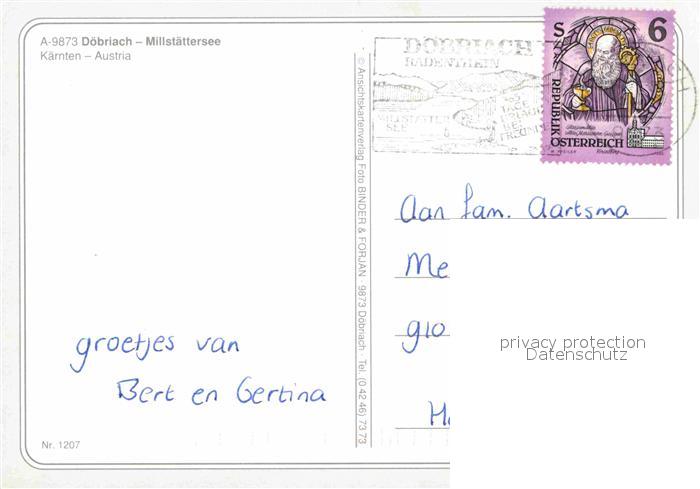 A-9873 Döbriach – Millstättersee
Kärnten – Austria
DÖBRIACH
RADENTHEIN
MILLSTÄTTER
SEE
S 6
REPUBLIK
ÖSTERREICH
© Ansichtskartenverlag Foto BINDER & FORJAN · 9873 Döbriach · Tel. (0 42 46) 73 73
Aan fam. Aartsma
Me
glo
H
privacy protection
Datenschutz
groetjes van
Bert en Gertina
Nr. 1207